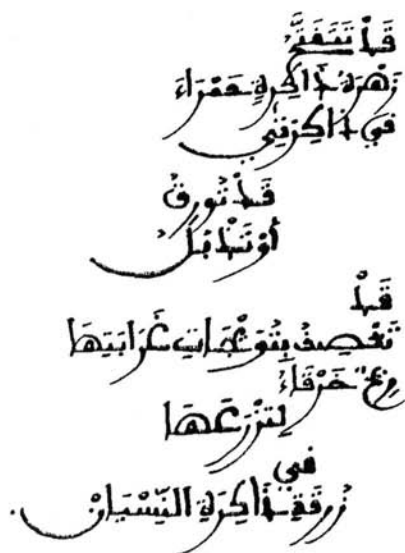 قَدْ تَتَفَتَّحُ
زَهْرَةُ ذَاكِرَةٍ حَمْرَاءَ
فِي ذَاكِرَتِي
قَدْ تُورِقُ
أَوْ تَذْبُلُ
قَدْ
تَعْصِفُ بِتُوَيْجَاتِ غَرَابَتِهَا
رِيحٌ خَرْقَاءُ
لِتَزْرَعَهَا
فِي
زُرْقَةِ ذَاكِرَةِ النِّسْيَانْ.